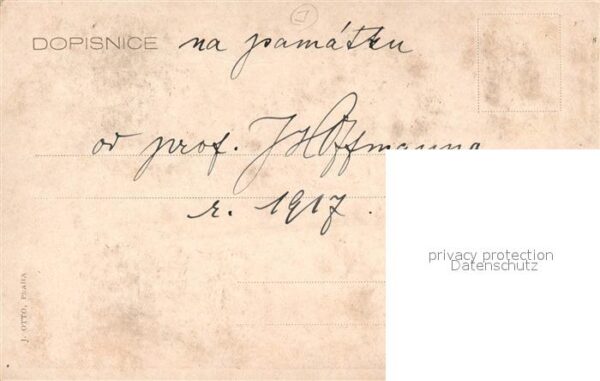 DOPISNICE na památku
od prof. J. Hoffmanna
r. 1917.
privacy protection
Datenschutz
J. OTTO, PRAHA